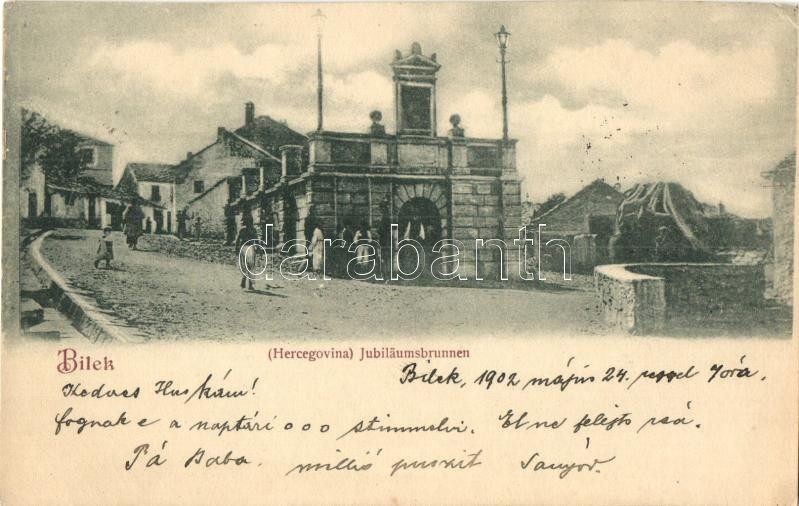 darabanth
Bilek
(Hercegovina) Jubiläumsbrunnen
Bilek, 1902 május 24. reggel 7 óra.
Kedves Huskám!
fognak e a naptári ooo stimmelni. El ne felejts
Pá Baba. millió puszit